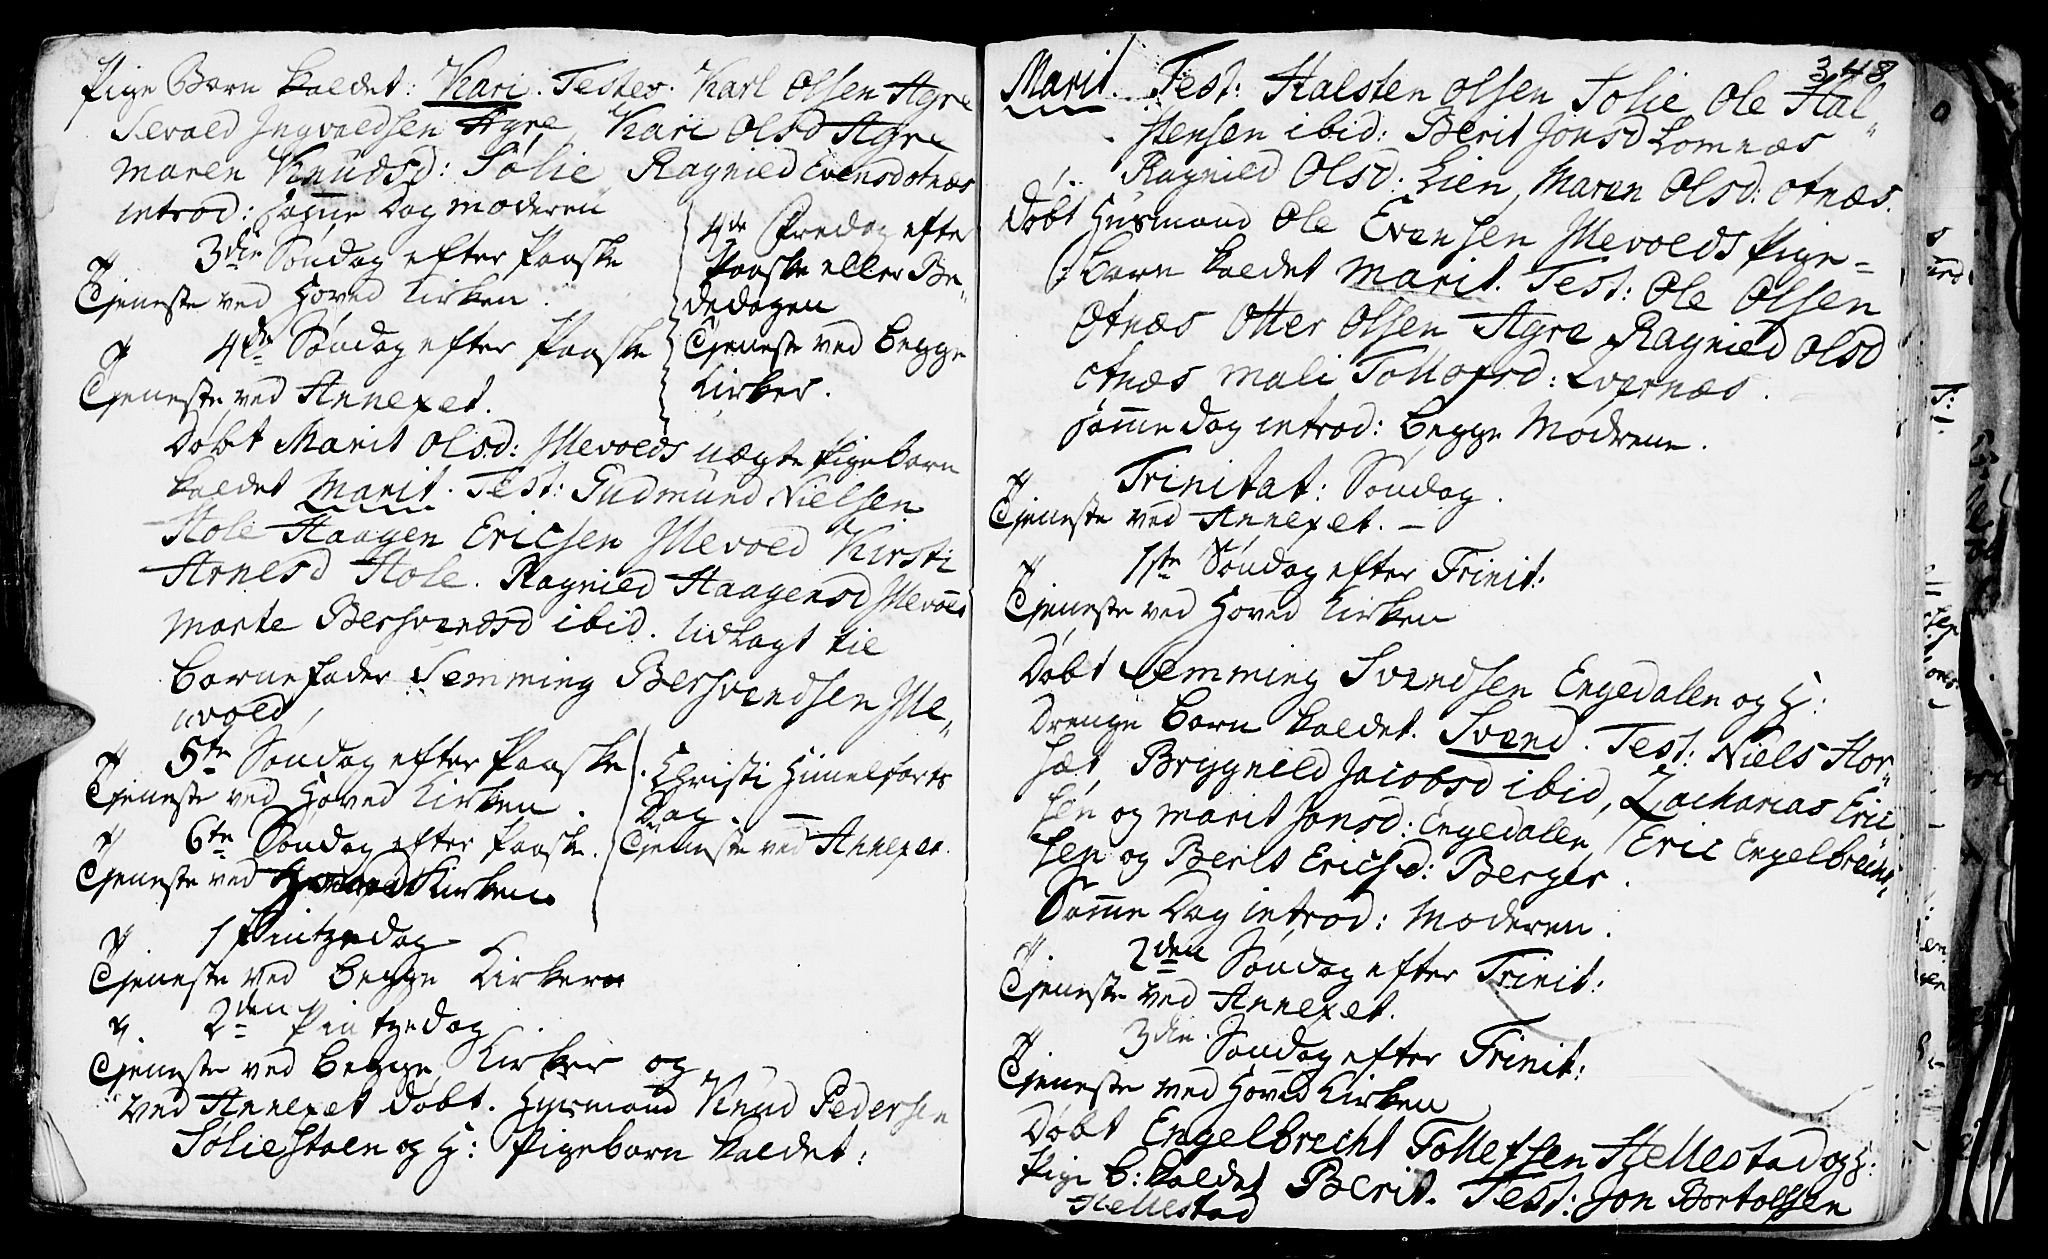 Pige Barn kaldet: Kari. Testes. Karl Olsen Agre
Sevold Ingvoldsen Agre, Kari Olsd Agre
Maren Knudsd: Sølie Ragnild Evensd Otnæs
introd: samme Dag Moderen
3die Søndag efter Paaske
Tjeneste ved Hoved Kirken.
4de Søndag efter Paaske
Tjeneste ved Annexet.
4de Fredag efter
Paaske eller Be-
dedagen
Tjeneste ved begge
Kirker.
Døbt Marit Olsd: Mevolds uægte Pigebarn
kaldet Marit. Test: Gudmund Nielsen
Hole Haagen Ericsen Mevold Kirsti
Arnesd Hole. Ragnild Haagensd Mevold
Marte Bersvendsd ibid. Udlagt til
Barnefader Semming Bersvendsen Me-
uvold,
5te Søndag efter Paaske
Tjeneste ved Hoved Kirken.
Christi Himelfarts
Dag. —
Tjeneste ved Annexet.
6te Søndag efter Paaske.
Tjeneste ved Kirken
1 Pintzedag
Tjeneste ved begge Kirkern
2den Pintzedag
Tjeneste ved begge Kirker og
ved Annexet døbt. Husmand Knud Pedersen
Sølie Støen og H: Pigebarn kaldet:
348
Marit. Test: Halsten Olsen Solie Ole Hal-
stensen ibid: Berit Jonsd Lomnæs
Ragnild Olsd. Lien, Maren Olsd: Otnæs.
Døbt Husmand Ole Evensen Mevolds Pige=
barn kaldet Marit. Test: Ole Olsen
Otnæs Otter Olsen Agre Ragnild Olsd
Otnæs Mali Tollofsd: Qvernæs.
samme Dag introd: begge Mødrene.
Trinitat: Søndag.
Tjeneste ved Annexet. —
1ste Søndag efter Trinit:
Tjeneste ved Hoved Kirken
Døbt Semming Svendsen Engedalen og H:
Drenge Barn kaldet. Svend. Test: Niels Hor-
sæt, Bryngnild Jacobsd ibid, Zacharias Eric
sen og Marit Jonsd: Engedalen, Eric Engelbrecht-
sen og Berit Ericsd: Berger.
Samme Dag introd: Moderen.
2den Søndag efter Trinit:
Tjeneste ved Annexet.
3die Søndag efter Trinit:
Tjeneste ved Hoved Kirken
Døbt Engelbrecht Tollefsen Hellestad og H:
Pige B: kaldet Berit. Test: Jon Bortolsen
Hellestad